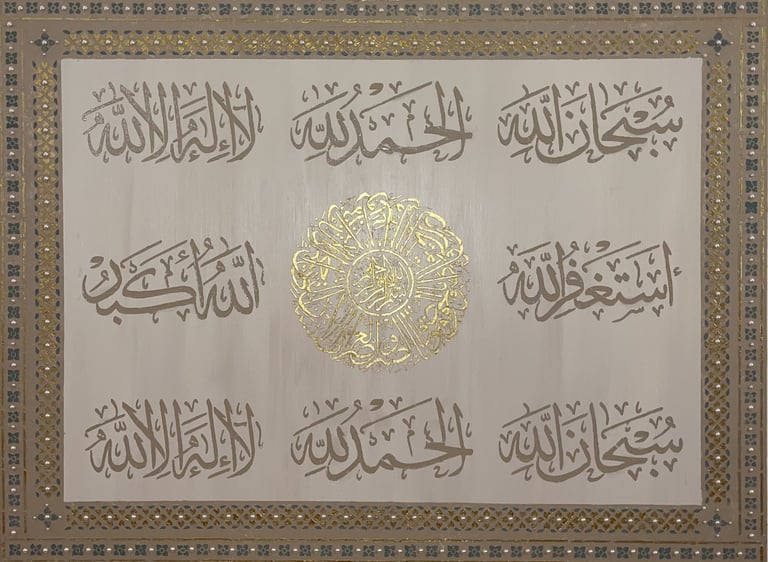 سُبْحَانَ اللَّه الحَمْدُ لِلَّه لَا إِلٰهَ إِلَّا اللَّه
أَسْتَغْفِرُ اللَّه اللَّهُ أَكْبَرُ
سُبْحَانَ اللَّه الحَمْدُ لِلَّه لَا إِلٰهَ إِلَّا اللَّه